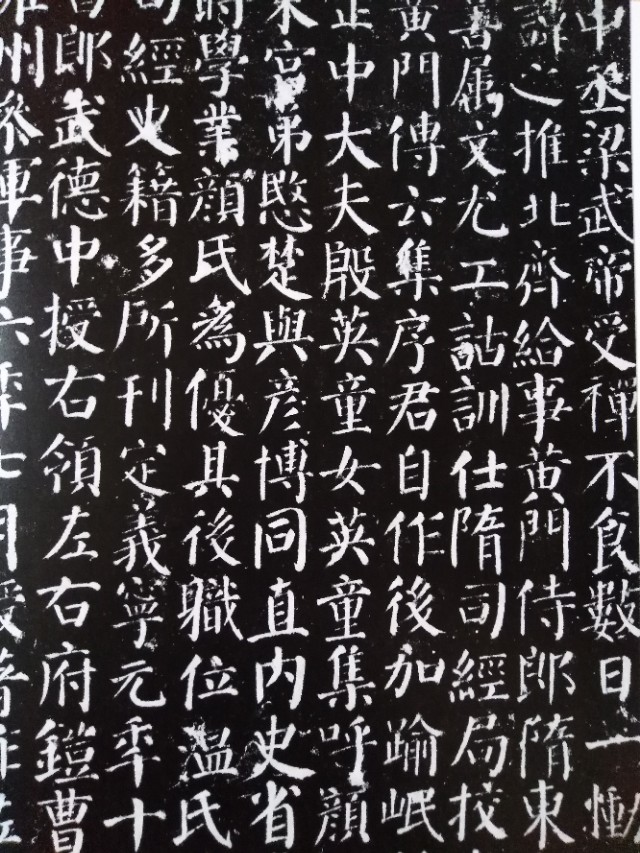 中丞梁武帝受禪不食數日一慟
諱之推北齊給事黃門侍郎隋東
善属文尤工詁訓仕隋司經局校
黃門傳云集序君自作後加踰岷
正中大夫殷英童女英童集呼顏
東宮弟愍楚與彥博同直内史省
時學業顏氏為優其後職位溫氏
司經史籍多所刊定義寧元秊十
郎武德中授右領左右府鎧曹
雍州參軍事六秊七月授著作佐